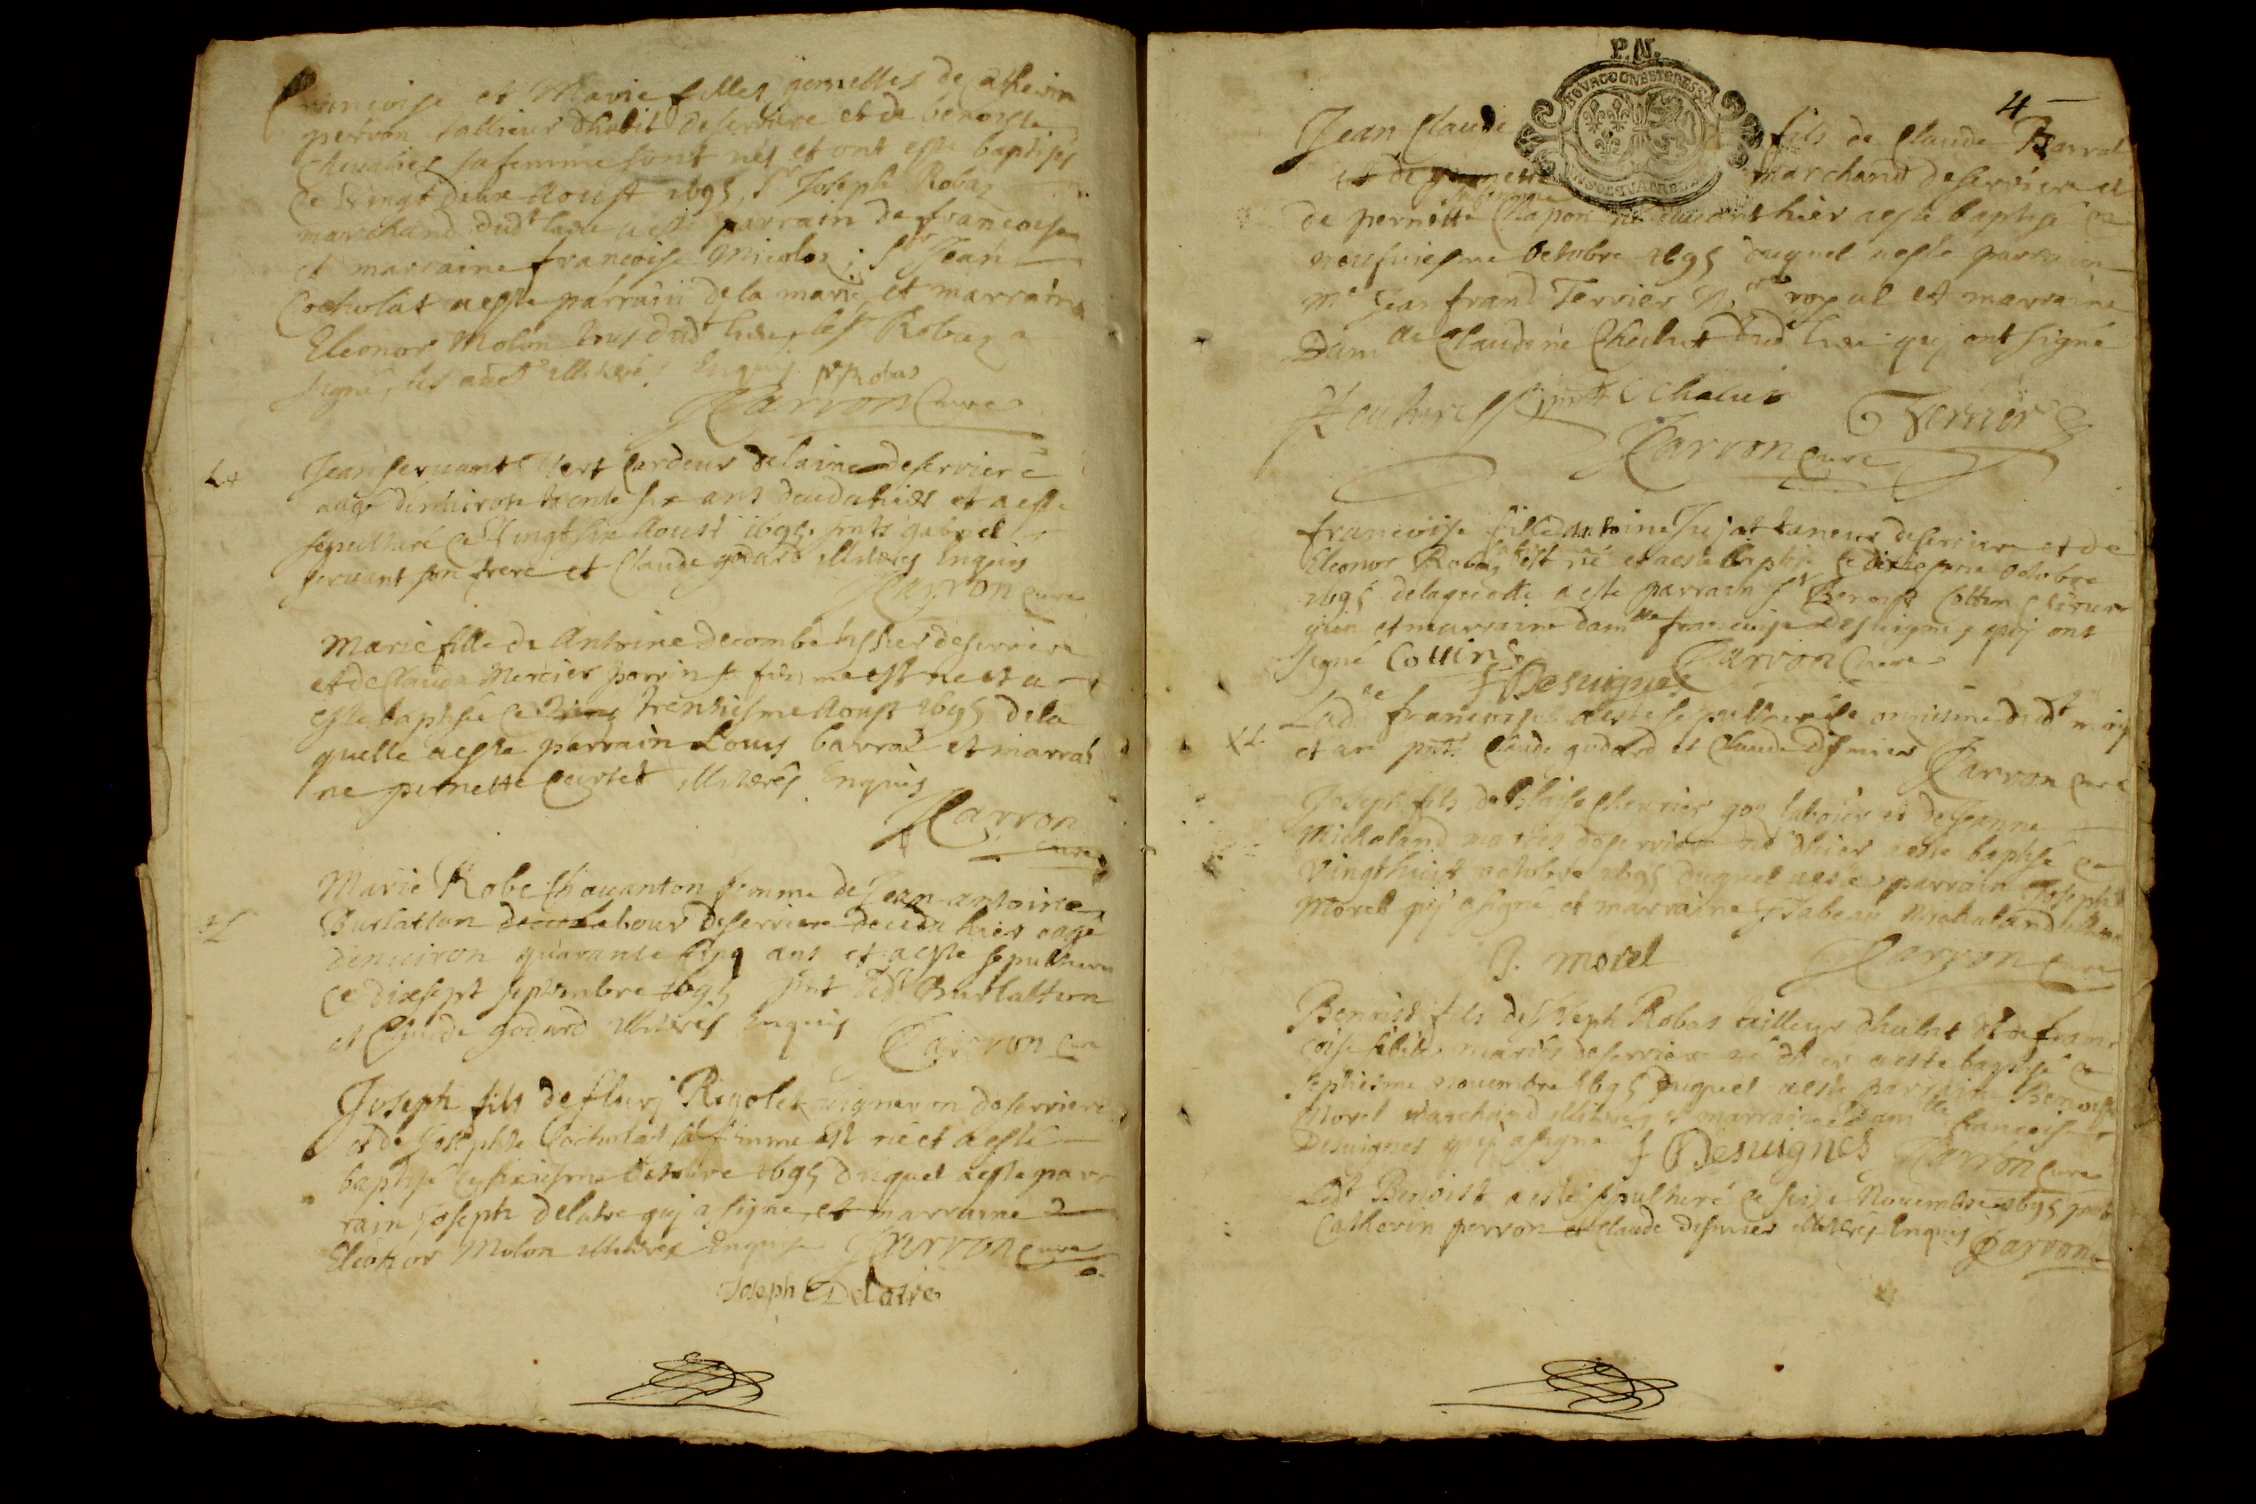 francoise et Marie filles gemelles de Catherin
perron tallieur dhabit deserviere et de benoiste
Chevalier sa femme sont nes et ont este baptisés
ce vingt deux Aoust 1695, Sr Joseph Robas
marchand dudt lieu a este parrain de francoise
et marraine francoise Nicolas; Sr Jean
Cocholat a este parrain de la marie et marraine
Eleonor Molon tous dud lieu, le Sr Robas a
signé, les autres illiterés Enquis
J Robas
Carron Curé
Jean servant Vert Cardeur de laine deserviere
aagé denviron trente six ans deceda hier et a este
sepulturé ce vingt six Aoust 1695, pnts gabriel
servant son frere et Claude godard illiteres Enquis
Carron Curé
Marie fille de Antoine decombe tissier deserviere
et de Clauda Mercier perrin sa femme est ne et a
este baptisée ce trentiesme Aoust 1695 de la
quelle a este parrain Louis barral et marrai
ne pernette Curtet illiterés Enquis
Carron
Curé
Marie Robe Chavanton femme de Jean antoine
Burlatton labour deserviere deceda hier aagé
denviron quarante cinq ans et a este sepulturée
ce dixsept septembre 1695 pnt led Burlatton
et Claude godard illiterés Enquis
Carron Curé
Joseph fils de fleury Rigolet vigneron deserviere
et de Josephte Cocholat sa femme est né et a esté
baptisé ce sixiesme Octobre 1695 duquel a este par
rain Joseph delatre qui a signe, et marraine
Eleonor Molon illiteree Enquise Carron Curé
Joseph Delatre
P.N.
4
Jean Claude fils de Claude Barral
marchand deserviere et
de pernette Chapon sa femme avant hier a este baptisé ce
neufviesme Octobre 1695 duquel a este parrain
Me Jean francd Terrier Nre royal et marraine
Damlle Claudine Chachut dud lieu qui ont signé
Chacut
Terrier
Carron Curé
francoise fille dAntoine Jujat taneur deserviere et de
Eleonor Robas est né et a este baptisé ce dixiesme Octobre
1695 de laquelle a este parrain Sr Benoist Cottin Chirur
gien et marraine damlle francoise Desvignes qui ont
signé Cottin
f Desvignes Carron Curé
Ladte francoise a este sepulturée ce onziesme dudt mois
et an pnts Claude godard et Claude dismier Carron Curé
Joseph fils de blaise Cherrier labour et de Jeanne
Michaland mariés deserviere né dhier a este baptisé ce
vingthuict octobre 1695 duquel a este parrain Joseph
Morel qui a signé et marraine Isabeau Michaland illitere
J. morel Carron Curé
Benoist fils de Joseph Robas tailleur dhabit et de fran
coise mariés deserviere né dhier a este baptisé ce
septiesme novembre 1695 duquel a este parrain Benoist
Morel Marchand illiteré et marraine Damlle francoise
Desvignes qui a signé f Desvignes Carron Curé
Ledt Benoist a este sepulturé ce seize Novembre 1695 pnts
Catherin perron et Claude dismier illiterés Enquis Carron